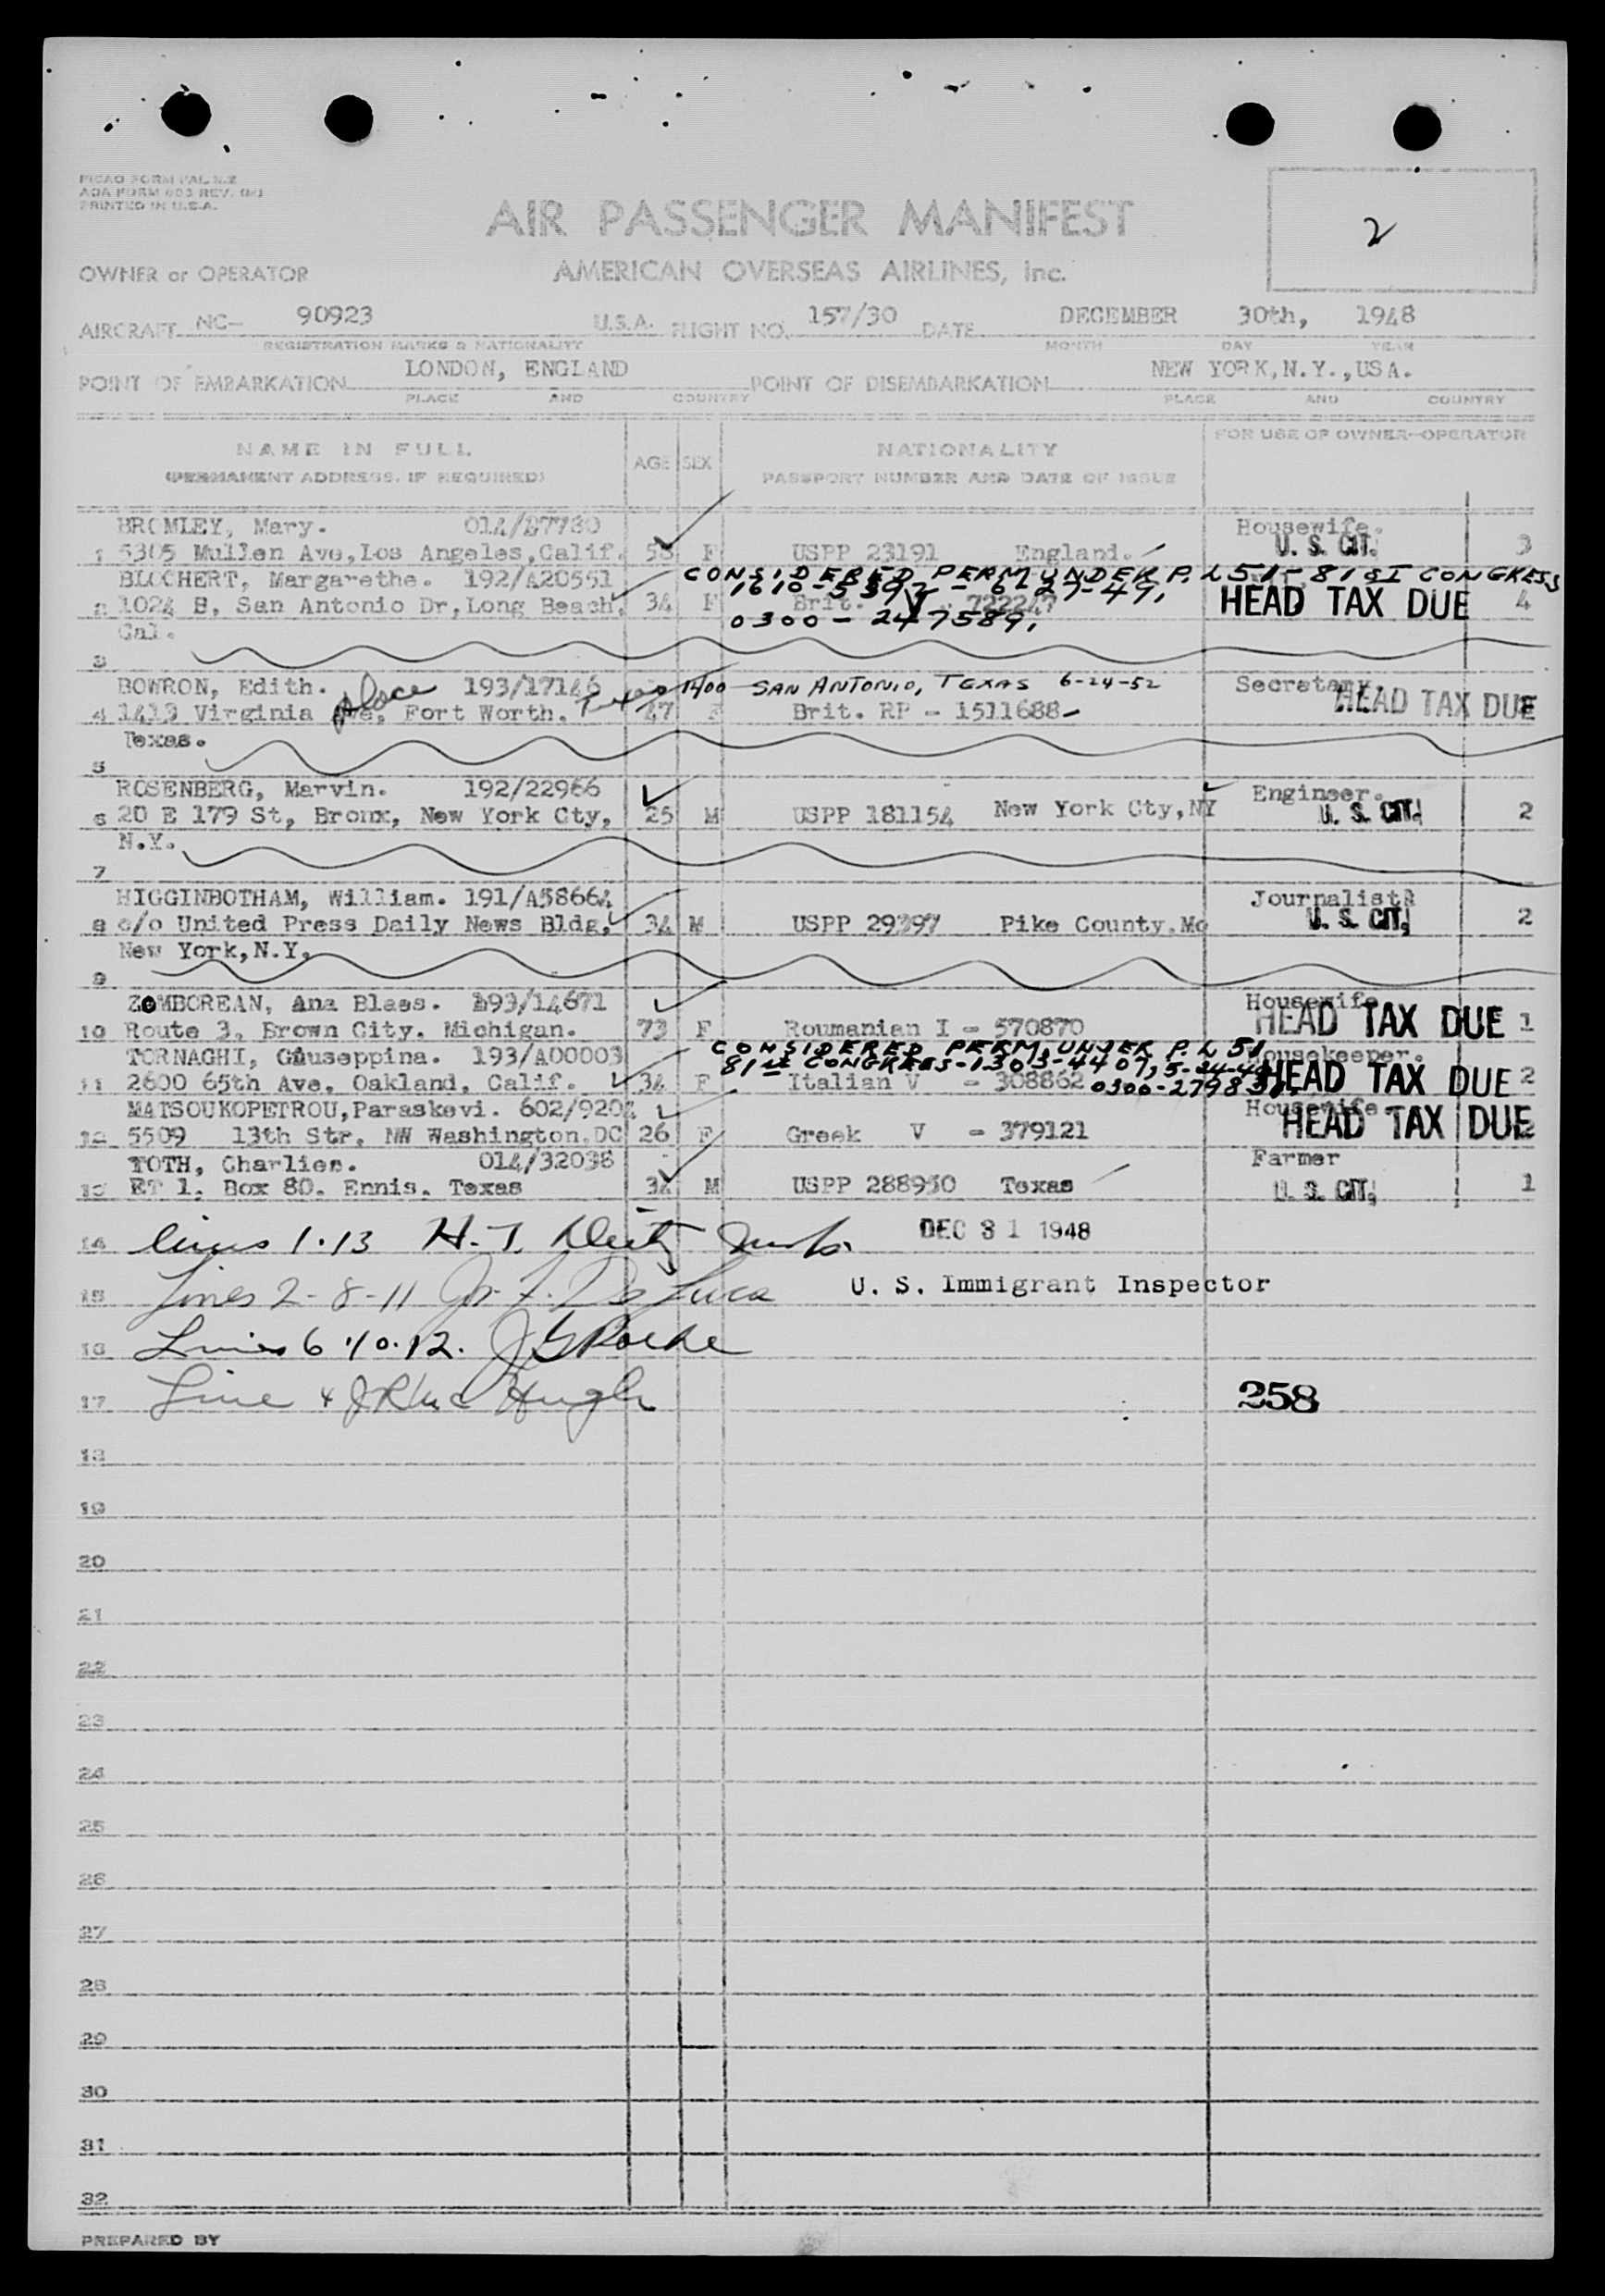 PICAO FORM PAL N.2
AOA FORM 603 REV.
PRINTED IN U.S.A.
AIR PASSENGER MANIFEST
2
OWNER or OPERATOR AMERICAN OVERSEAS AIRLINES, Inc.
AIRCRAFT NC- 90923 U.S.A. FLIGHT NO. 157/30 DATE DECEMBER 30th, 1948
REGISTRATION MARKS & NATIONALITY MONTH DAY YEAR
POINT OF EMBARKATION LONDON, ENGLAND POINT OF DISEMBARKATION NEW YORK,N.Y.,USA.
PLACE AND COUNTRY PLACE AND COUNTRY
NAME IN FULL AGE SEX NATIONALITY FOR USE OF OWNER-OPERATOR
(PERMANENT ADDRESS, IF REQUIRED) PASSPORT NUMBER AND DATE OF ISSUE
BROMLEY, Mary. Housewife.
1 5305 Mullen Ave,Los Angeles,Calif. 58 F USPP 23191 England. U. S. CIT. 3
BLOCHERT, Margarethe. 192/A20551 CONSIDERED PERM UNDER P. L 51 - 81ST CONGRESS
2 1024 B, San Antonio Dr,Long Beach, 34 F Brit. V - 722247 HEAD TAX DUE 4
Cal. 0300 - 247589,
3
BOWRON, Edith. 193/17146 1400 - SAN ANTONIO, TEXAS 6-24-52 Secretary
4 1413 Virginia place Ave, Fort Worth. 47 F Brit. RP - 1511688 HEAD TAX DUE
Texas.
5
ROSENBERG, Marvin. 192/22966 Engineer.
6 20 E 179 St, Bronx, New York Cty, 25 M USPP 181154 New York Cty,NY U. S. CIT. 2
N.Y.
7
HIGGINBOTHAM, William. 191/A58664 Journalist
8 c/o United Press Daily News Bldg, 34 M USPP 29397 Pike County,Mo U. S. CIT. 2
New York,N.Y.
9
ZOMBOREAN, Ana Blaes. 193/14671 Housewife
10 Route 3, Brown City. Michigan. 73 F Roumanian I - 570870 HEAD TAX DUE 1
TORNAGHI, Giuseppina. 193/A00003 CONSIDERED PERM UNDER P. L 51 Housekeeper.
81st CONGRESS-1303-4407,
11 2600 65th Ave, Oakland, Calif. 34 F Italian V - 308862 HEAD TAX DUE 2
MATSOUKOPETROU,Paraskevi. Housewife
12 5509 13th Str, NW Washington,DC 26 F Greek V - 379121 HEAD TAX DUE
TOTH, Charlies. 014/32038 Farmer
13 RT 1, Box 80. Ennis. Texas 34 M USPP 288950 Texas U. S. CIT. 1
14 lines 1.13 DEC 31 1948
15 Lines 2-8-11 De Luca U. S. Immigrant Inspector
16 Lines 6.10.12. J G Roche
17 Line 4 Hugh 258
18
19
20
21
22
23
24
25
26
27
28
29
30
31
32
PREPARED BY